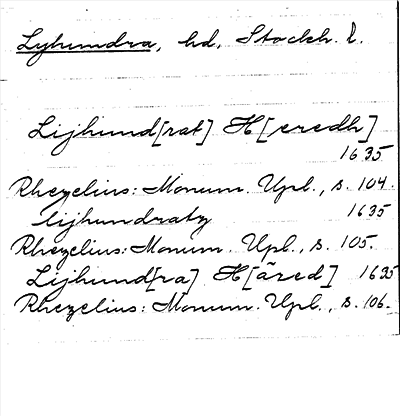 Lyhundra, hd, Stockh. l.
Lijhund[rat] H[eredh]
1635
Rhezelius: Monum. Upl., s. 104.
lijhundratz 1635
Rhezelius: Monum. Upl., s. 105.
Lijhund[ra] H[ãred] 1635
Rhezelius: Monum. Upl., s. 106.